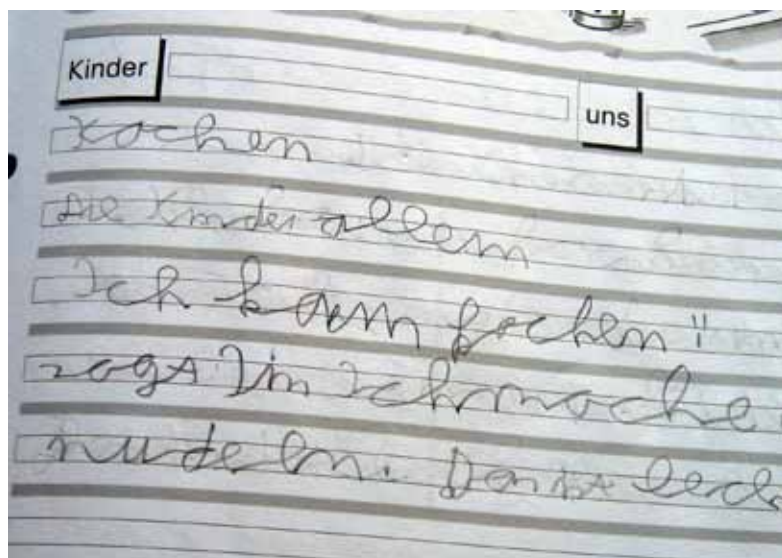 Kinder uns
Kochen
Die Kinder allein
Ich kann kochen"
sagt Tim Ich mache
nudeln. Das ist leck